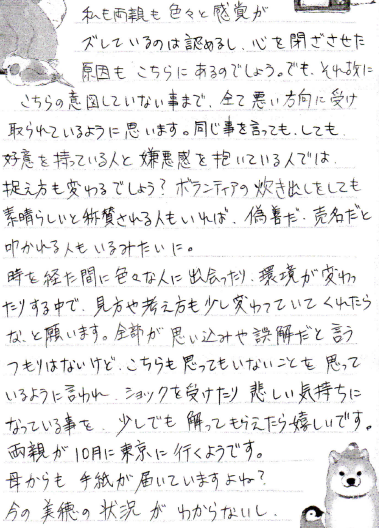 私も両親も色々と感覚が
ズレているのは認めるし、心を閉ざさせた
原因もこちらにあるのでしょう。でも、それ故に
こちらの意図していない事まで、全て悪い方向に受け
取られているように思います。同じ事を言っても、しても、
好意を持っている人と嫌悪感を抱いている人では、
捉え方も変わるでしょう？ボランティアの炊き出しをしても
素晴らしいと称賛される人もいれば、偽善だ、売名だと
叩かれる人もいるみたいに。
時を経た間に色々な人に出会ったり、環境が変わっ
たりする中で、見方や考え方も少し変わっていてくれたら
な、と願います。全部が思い込みや誤解だと言う
つもりはないけど、こちらも思ってもいないことを思って
いるように言われ、ショックを受けたり悲しい気持ちに
なっている事を、少しでも解ってもらえたら嬉しいです。
両親が10月に東京に行くようです。
母からも手紙が届いていますよね？
今の美穂の状況がわからないし、